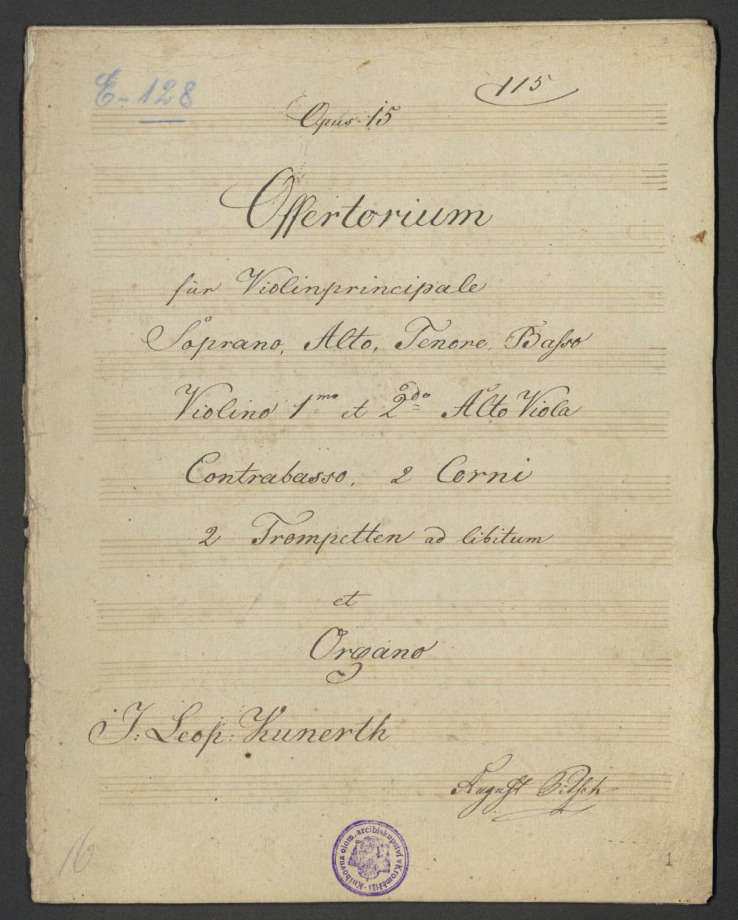 E-128
115
Opus 15
Offertorium
für Violinprincipale
Soprano, Alto, Tenore, Basso
Violino 1mo et 2do Alto Viola
Contrabasso, 2 Corni
2 Trompetten ad libitum
et
Organo
J: Leop: Kunerth
August Pitsch
Knihovna olom. arcibiskupství v Kroměříži
16
1